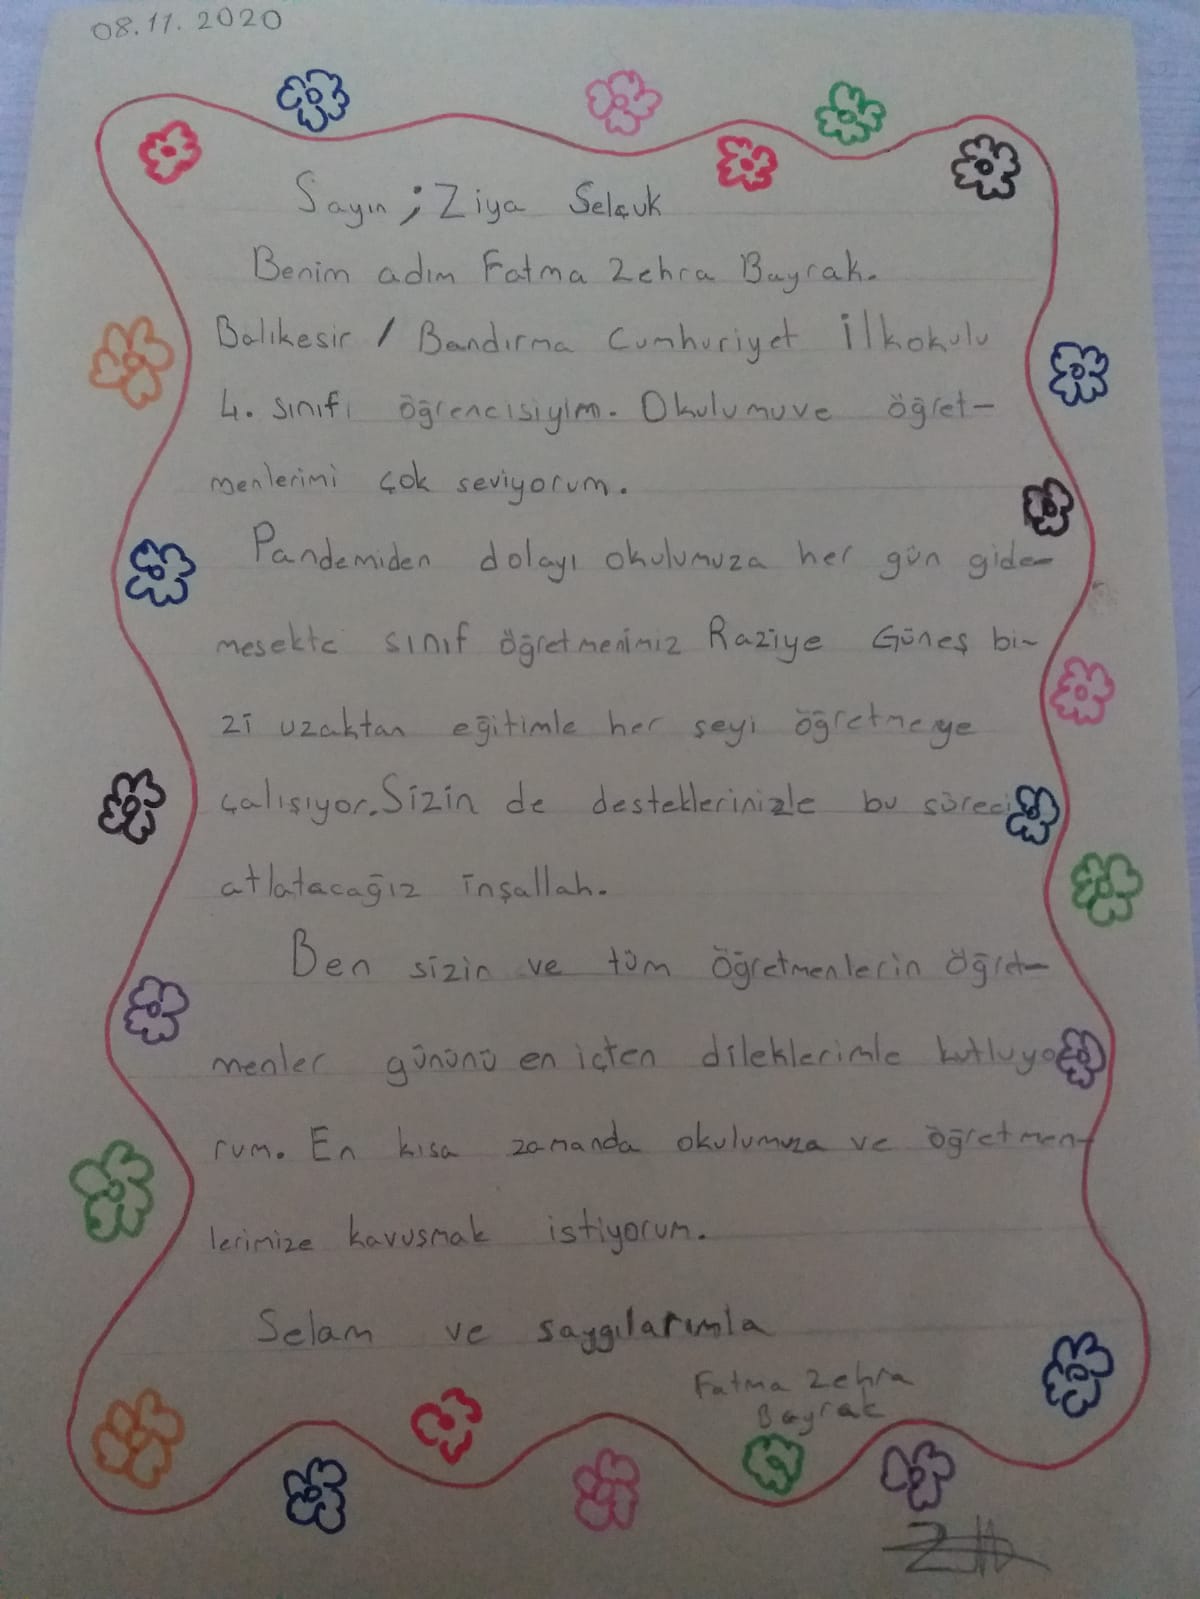 08.11.2020
Sayın ; Ziya Selçuk
Benim adım Fatma Zehra Bayrak.
Balıkesir / Bandırma Cumhuriyet İlkokulu
4. sınıfı öğrencisiyim. Okulumuve öğret-
menlerimi çok seviyorum.
Pandemiden dolayı okulumuza her gün gide-
mesekte sınıf öğretmenimiz Raziye Güneş bi-
zi uzaktan eğitimle her şeyi öğretmeye
çalışıyor. Sizin de desteklerinizle bu süreci
atlatacağız inşallah.
Ben sizin ve tüm öğretmenlerin öğret-
menler gününü en içten dileklerimle kutluyo
rum. En kısa zamanda okulumuza ve öğretmen-
lerimize kavuşmak istiyorum.
Selam ve saygılarımla
Fatma Zehra
Bayrak